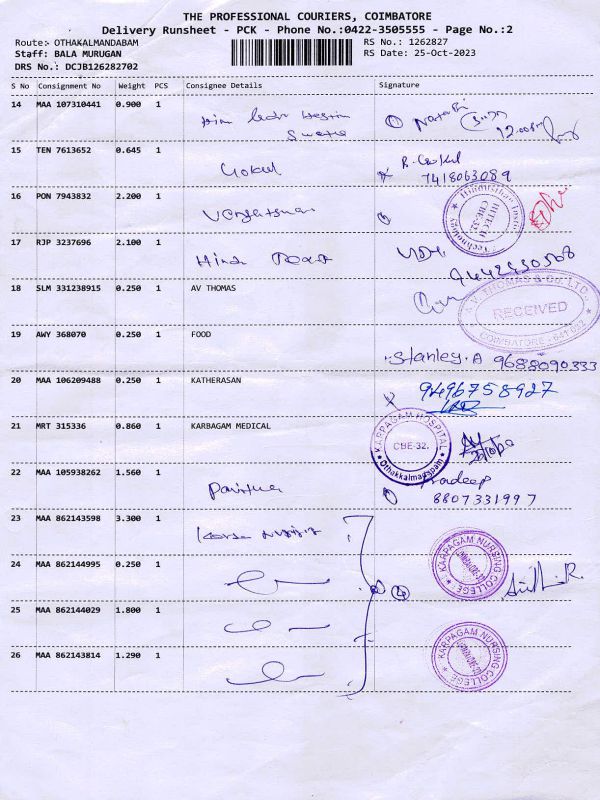 THE PROFESSIONAL COURIERS, COIMBATORE
Delivery Runsheet - PCK - Phone No.:0422-3505555 - Page No.:2
Route:- OTHAKALMANDABAM
RS No.: 1262827
Staff: BALA MURUGAN
RS Date: 25-Oct-2023
DRS No.: DCJB126282702
S No Consignment No Weight PCS Consignee Details Signature
14 MAA 107310441 0.900 1
15 TEN 7613652 0.645 1 Gokul
7418063089
16 PON 7943832 2.200 1
HITECH
CBE-32.
17 RJP 3237696 2.100 1
18 SLM 331238915 0.250 1 AV THOMAS
A.V. THOMAS & CO. LTD.
RECEIVED
19 AWY 368070 0.250 1 FOOD
Stanley. A 9688090333
20 MAA 106209488 0.250 1 KATHERASAN
9496758927
21 MRT 315336 0.860 1 KARBAGAM MEDICAL
KARPAGAM HOSPITAL
CBE-32.
Othakkalmandapam
22 MAA 105938262 1.560 1
Pradeep
8807331997
23 MAA 862143598 3.300 1
24 MAA 862144995 0.250 1
KARPAGAM NURSING COLLEGE
25 MAA 862144029 1.800 1
26 MAA 862143814 1.290 1
KARPAGAM NURSING COLLEGE